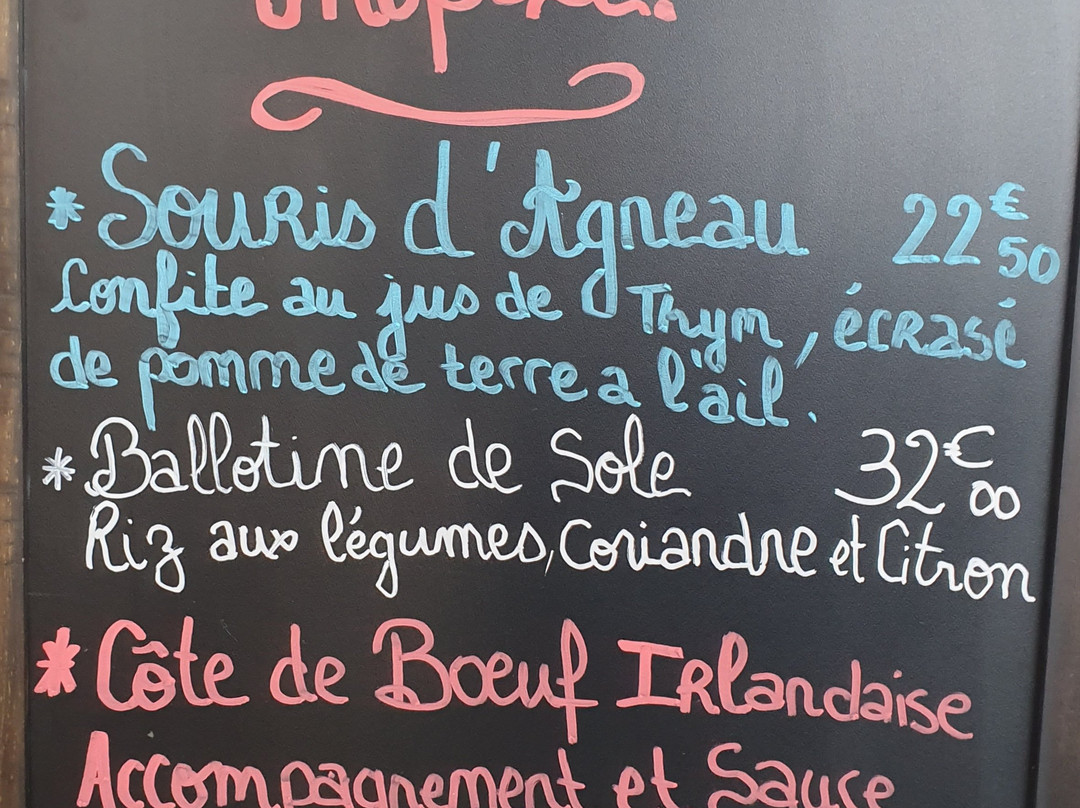 * Souris d'Agneau 22€50
Confite au jus de Thym, écrasé
de pomme de terre a l'ail.
* Ballotine de Sole 32€00
Riz aux légumes, Coriandre et Citron
* Côte de Boeuf Irlandaise
Accompagnement et Sauce